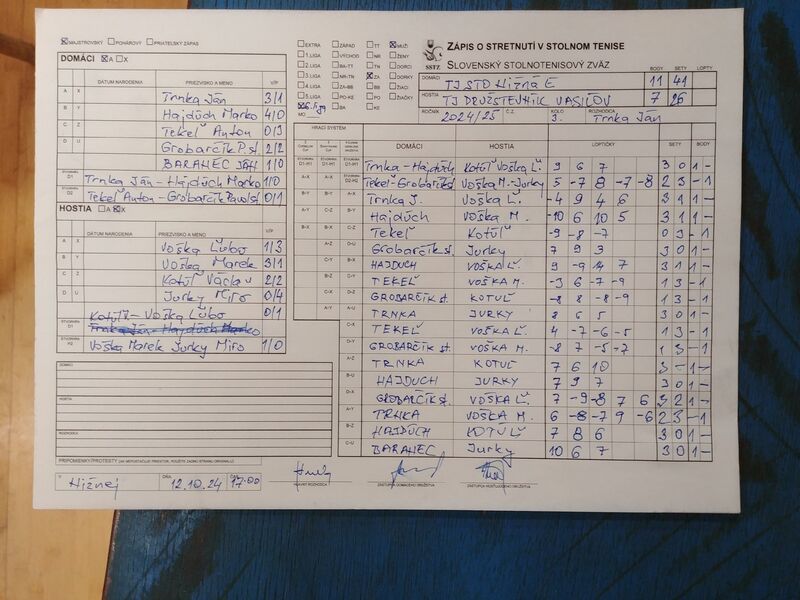 MAJSTROVSKÝ POHÁROVÝ PRIATEĽSKÝ ZÁPAS
DOMÁCI A X
DÁTUM NARODENIA PRIEZVISKO A MENO V/P
A X Trnka Ján 3/1
B Y Hajdúch Marko 4/0
C Z Tekeľ Anton 0/3
D U Grobarčík P.st 2/2
BARAHEC JÁN 1/0
D1 Trnka Ján - Hajdúch Marko 1/0
D2 Tekeľ Anton - Grobarčík Pavol st 0/1
HOSTIA A X
DÁTUM NARODENIA PRIEZVISKO A MENO V/P
A X Voška Ľubo 1/3
B Y Voška Marek 3/1
C Z Kotúľ Václav 2/2
D U Jurky Miro 0/4
Kotúľ - Voška Ľubo 0/1
D1 Trnka Ján - Hajdúch Marko
H2 Voška Marek Jurky Miro 1/0
DOMÁCI
HOSTIA
ROZHODCA
PRIPOMIENKY/PROTESTY
V Hižnej DŇA 12.10.24 17:00
HLAVNÝ ROZHODCA
ZÁSTUPCA DOMÁCEHO DRUŽSTVA
ZÁSTUPCA HOSŤUJÚCEHO DRUŽSTVA
EXTRA ZÁPAD TT MUŽI
1.LIGA VÝCHOD NR ŽENY
2.LIGA BA-TT TN DORCI
3.LIGA NR-TN ZA DORKY
4.LIGA ZA-BB BB ŽIACI
5.LIGA PO-KE PO ŽIAČKY
6.liga BA KE
MO
SSTZ
ZÁPIS O STRETNUTÍ V STOLNOM TENISE
SLOVENSKÝ STOLNOTENISOVÝ ZVÄZ
BODY SETY LOPTY
DOMÁCI TJ STO Hižná E 11 41
HOSTIA TJ DRUŽSTEVNÍK VASIĽOV 7 26
ROČNÍK 2024/25 Č.Z. KOLO 3. ROZHODCA Trnka Ján
HRACÍ SYSTÉM
DOMÁCI HOSTIA LOPTIČKY SETY BODY
D1-H1 Trnka - Hajdúch Kotúľ Voška Ľ. 9 6 7 3 0 1 -
D2-H2 Tekeľ-Grobarčík st Voška M.-Jurky 5 -7 8 -7 -8 2 3 - 1
A-X Trnka J. Voška Ľ. -4 9 4 6 3 1 1 -
B-Y Hajdúch Voška M. -10 6 10 5 3 1 1 -
Tekeľ Kotúľ -9 -8 -7 0 3 - 1
Grobarčík st. Jurky 7 9 3 3 0 1 -
HAJDUCH VOŠKA Ľ. 9 -9 4 7 3 1 1 -
TEKEĽ VOŠKA M. -3 6 -7 -9 1 3 - 1
GROBARČÍK st. KOTUĽ -8 8 -8 -9 1 3 - 1
A-U TRNKA JURKY 8 6 5 3 0 1 -
C-X TEKEĽ VOŠKA Ľ. 4 -7 -6 -5 1 3 - 1
D-Y GROBARČÍK st. VOŠKA M. -8 7 -5 -7 1 3 - 1
A-Z TRNKA KOTUĽ 7 6 10 3 - 1 -
B-U HAJDUCH JURKY 7 9 7 3 0 1 -
D-X GROBARČÍK st. VOŠKA Ľ. 7 -9 -8 7 6 3 2 1 -
A-Y TRNKA VOŠKA M. 6 -8 -7 9 -6 2 3 - 1
B-Z HAJDÚCH KOTÚĽ 7 8 6 3 0 1 -
C-U BARAHEC Jurky 10 6 7 3 0 1 -